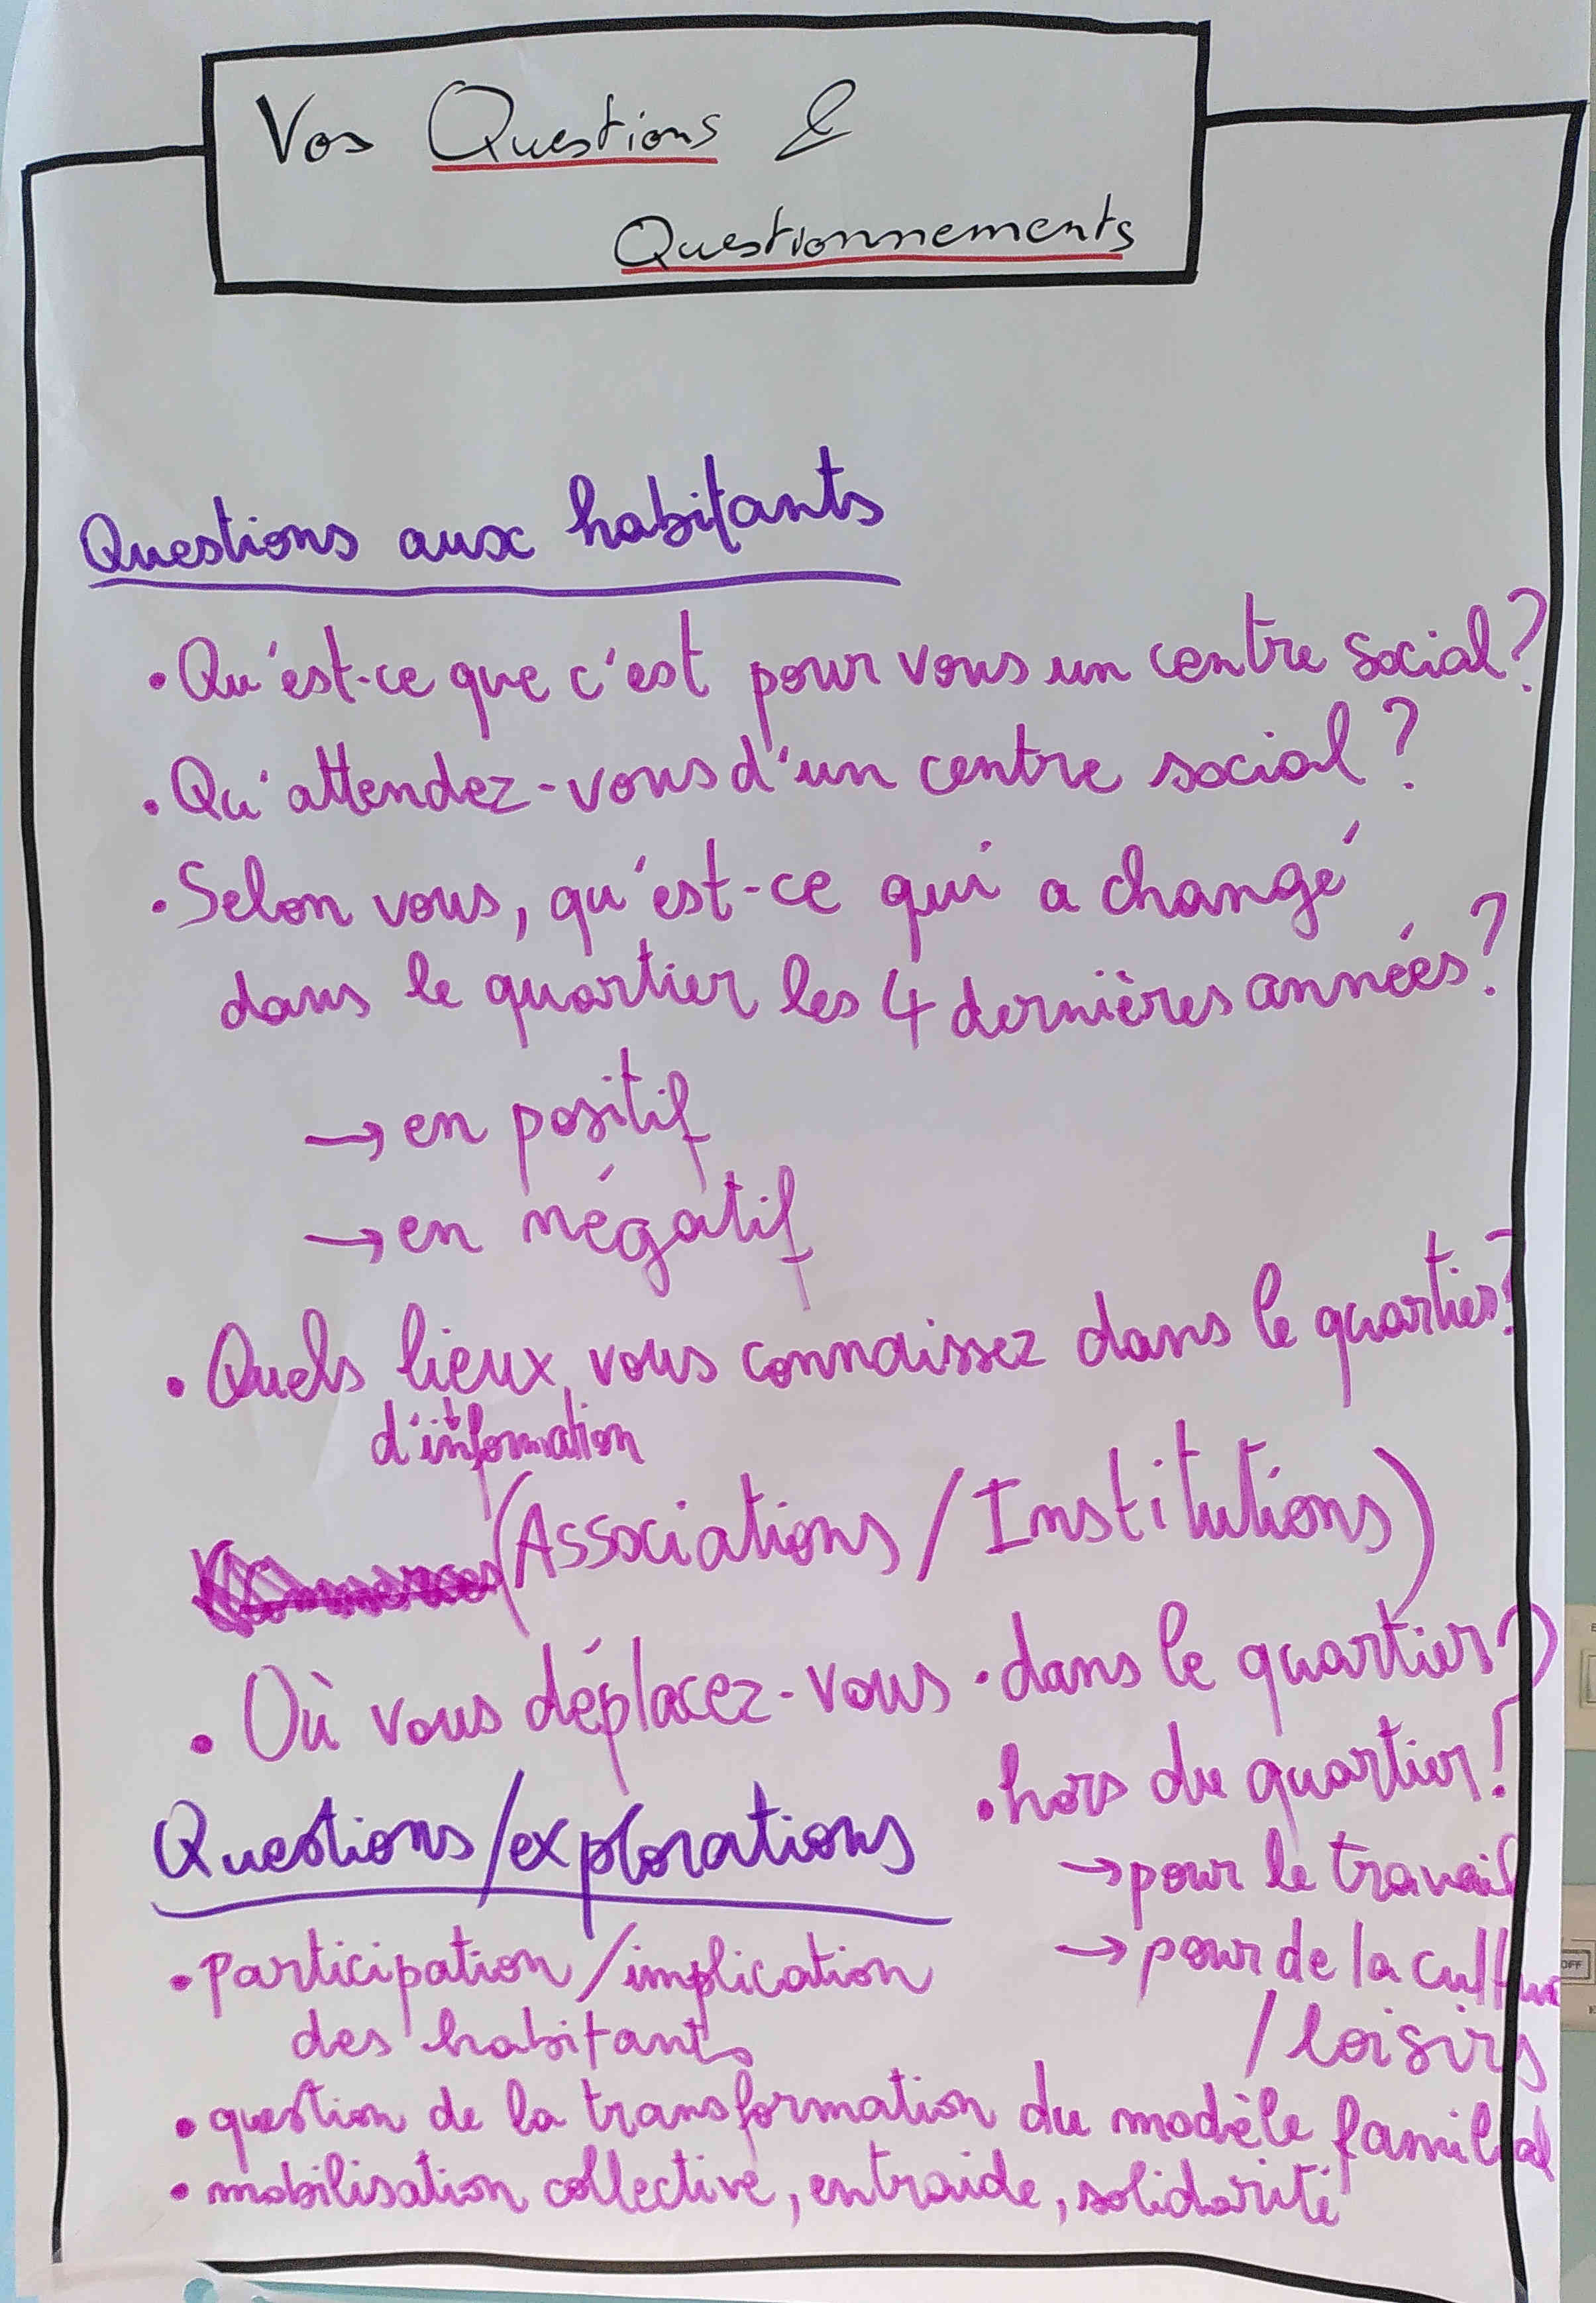 Vos Questions &
Questionnements
Questions aux habitants
• Qu'est-ce que c'est pour vous un centre social ?
• Qu'attendez-vous d'un centre social ?
• Selon vous, qu'est-ce qui a changé
dans le quartier les 4 dernières années ?
→ en positif
→ en négatif
• Quels lieux vous connaissez dans le quartier ?
d'information
(Associations / Institutions)
• Où vous déplacez-vous • dans le quartier ?
• hors du quartier ?
→ pour le travail
→ pour de la culture
/ loisirs
Questions/explorations
• participation / implication
des habitants
• question de la transformation du modèle familial
• mobilisation collective, entraide, solidarité
OFF